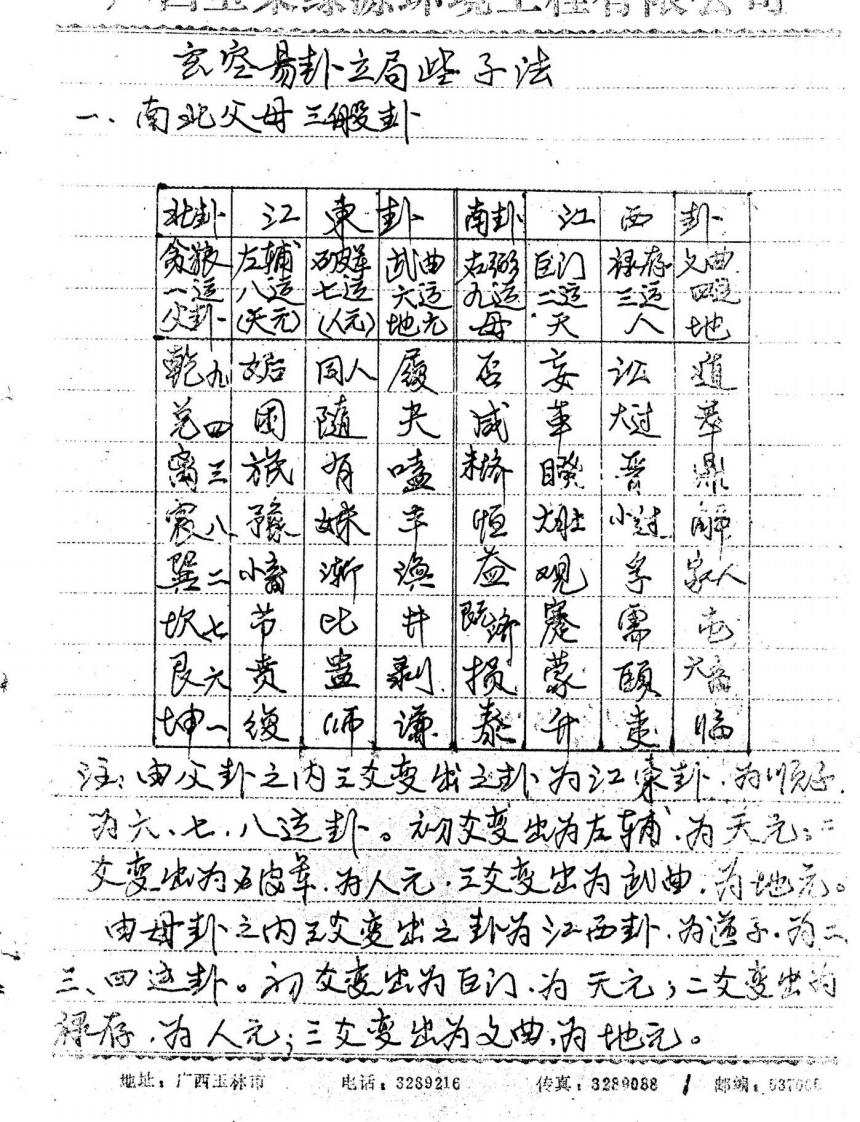 广西玉林绿源环境工程有限公司
玄空易卦立局些子法
一、南北父母三般卦
北卦 江 東 卦 南卦 江 西 卦
贪狼 左辅 破军 武曲 右弼 巨门 禄存 文曲
一运 八运 七运 六运 九运 二运 三运 四运
父卦 (天元) (人元) 地元 母 天 人 地
乾九 姤 同人 履 否 妄 讼 遁
兑四 困 随 夬 咸 革 大过 萃
离三 旅 有 嗑 未济 睽 晋 鼎
震八 豫 妹 丰 恒 大壮 小过 解
巽二 小畜 渐 涣 益 观 孚 家人
坎七 节 比 井 既济 蹇 需 屯
艮六 贲 蛊 剥 损 蒙 颐 大畜
坤一 復 师 谦 泰 升 夷 临
注:由父卦之内三爻变出之卦为江東卦,为顺子.
为六、七、八运卦。初爻变出为左辅,为天元;二
爻变出为破军,为人元,三爻变出为武曲,为地元。
由母卦之内三爻变出之卦为江西卦,为逆子,为二、
三、四运卦。初爻变出为巨门,为天元;二爻变出为
禄存,为人元;三爻变出为文曲,为地元。
地址:广西玉林市 电话:3289216 传真:3289088 / 邮编: